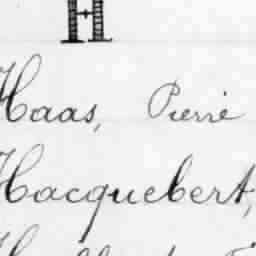 H
Haas, Pierre
Hacquebert,